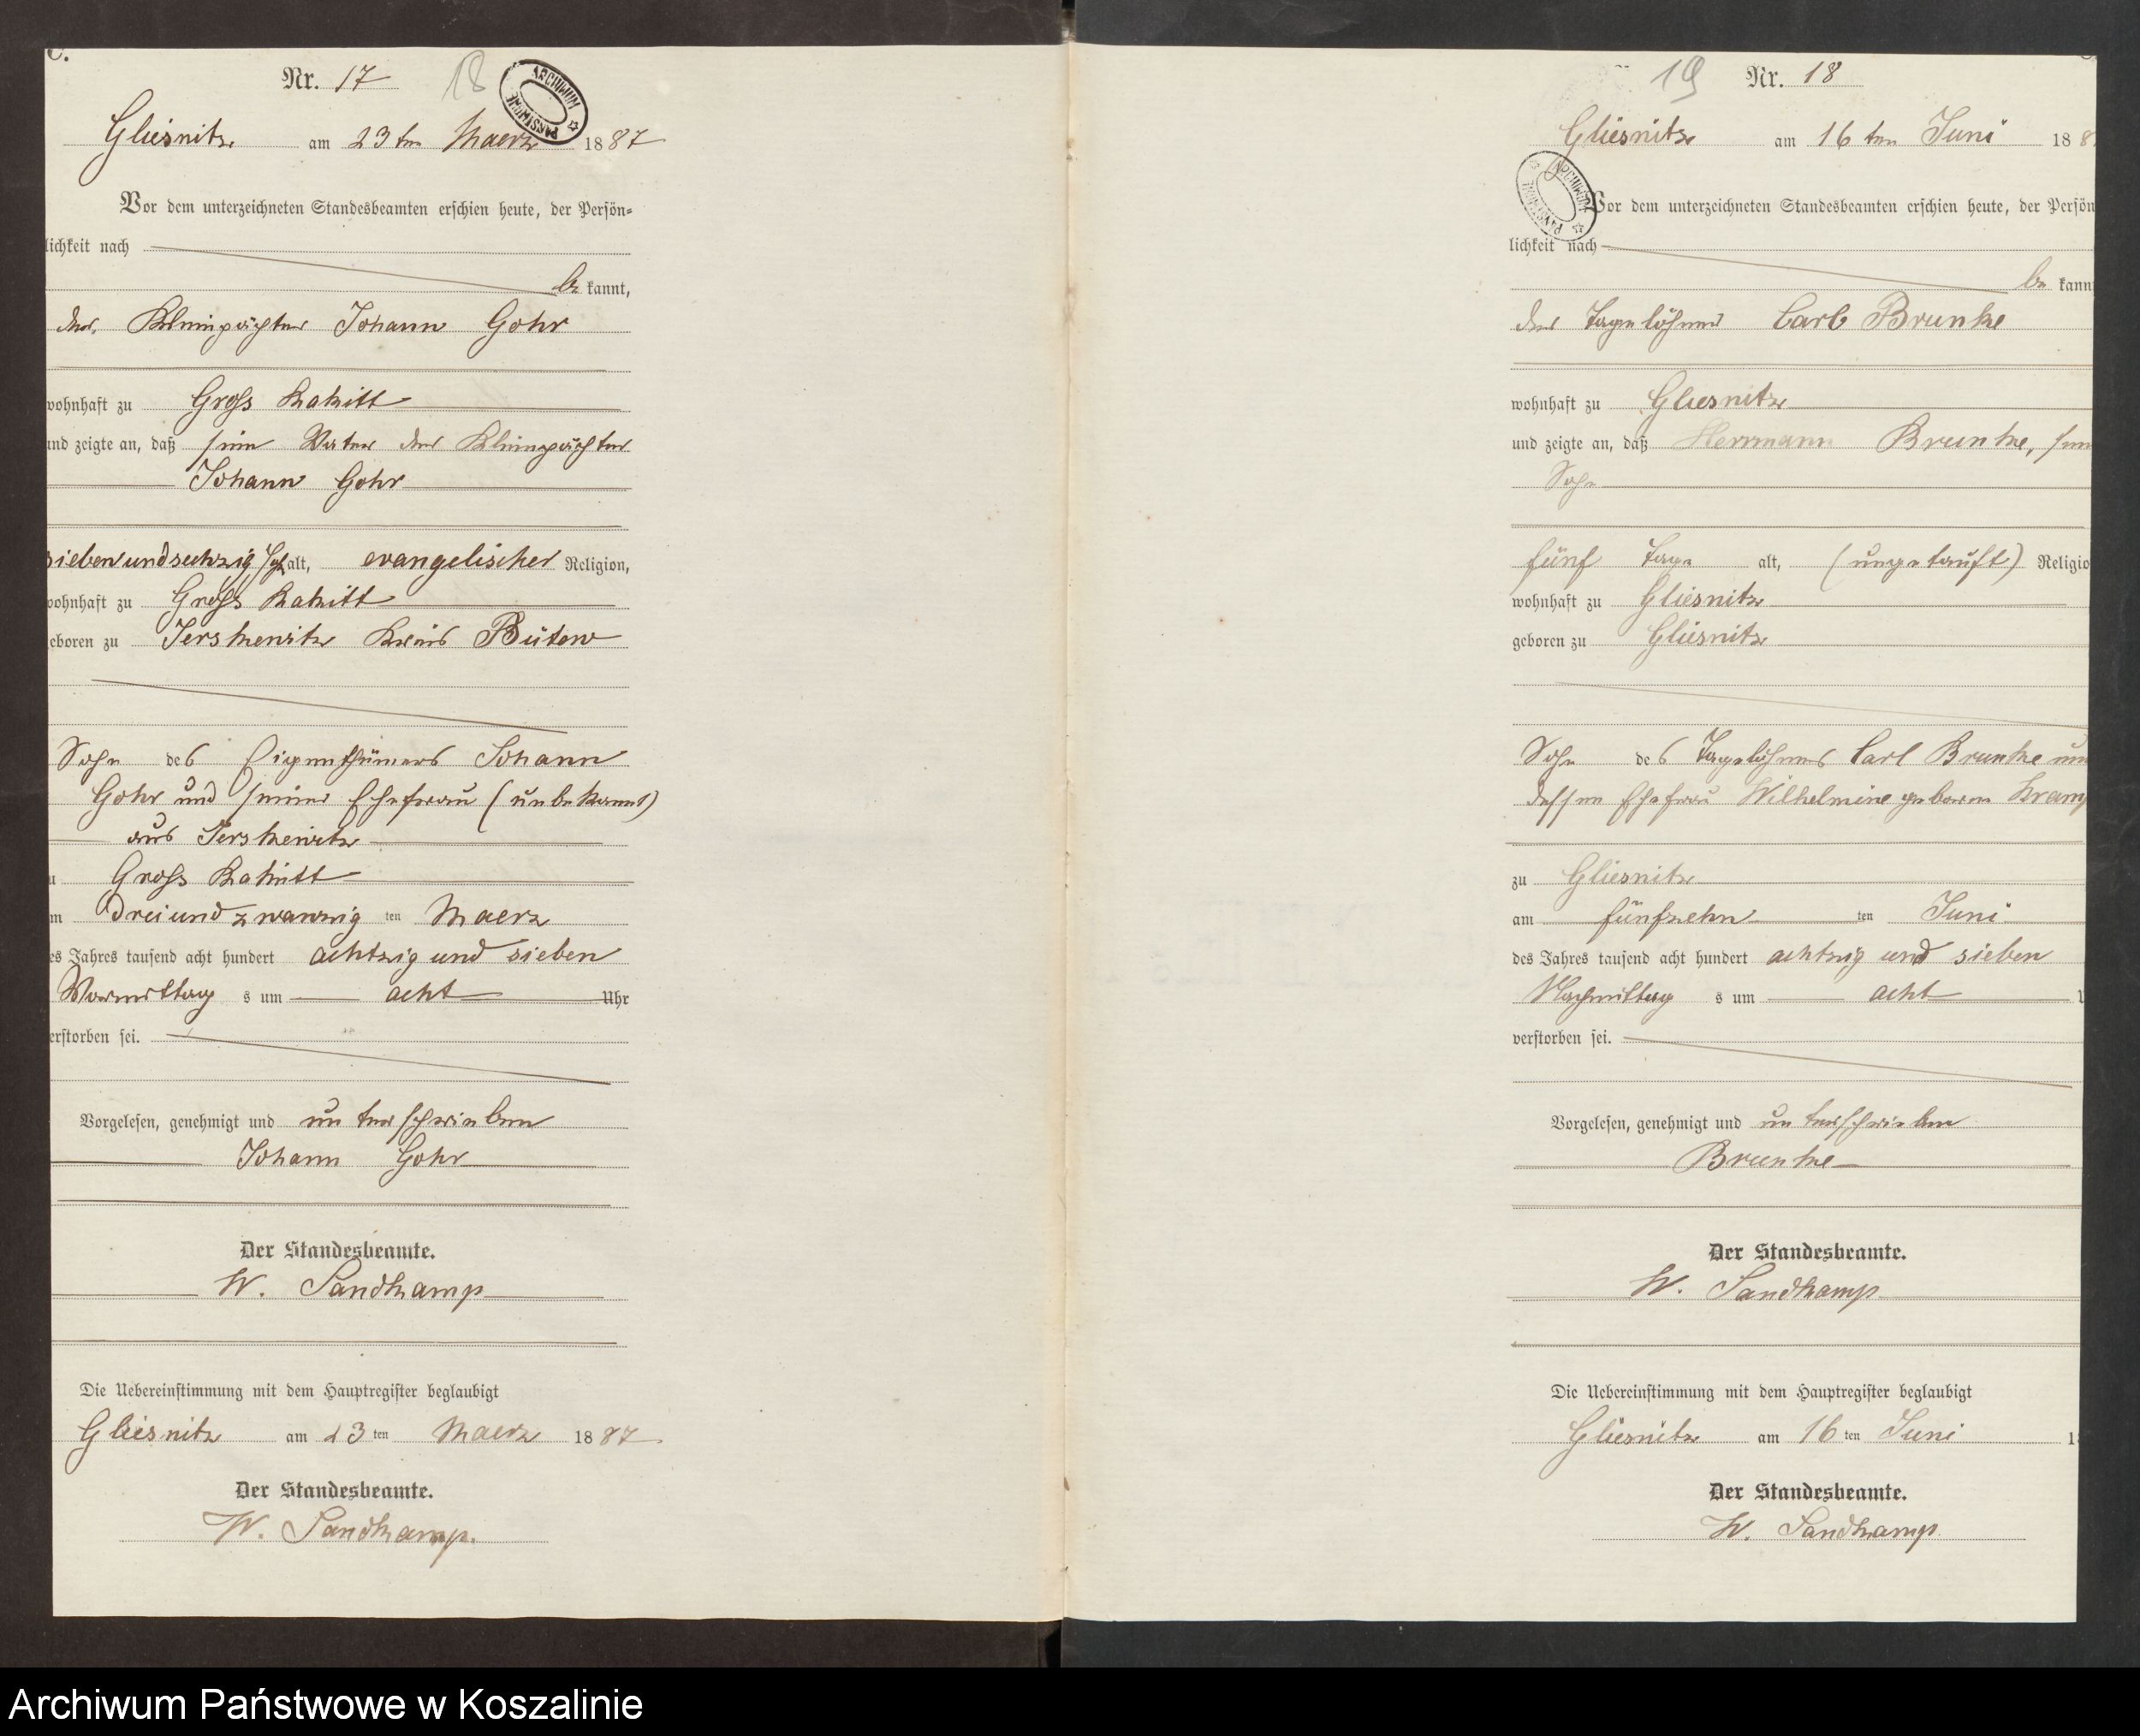 C.
Nr. 17
18
ARCHIWUM PAŃSTWOWE
Gliesnitz am 23ten Maerz 1887
Vor dem unterzeichneten Standesbeamten erschien heute, der Persön-
lichkeit nach
be kannt,
der Kleinpächter Johann Gohr
wohnhaft zu Gross Rakitt
und zeigte an, daß sein Vater der Kleinpächter
Johann Gohr
siebenundsechzig Jahr alt, evangelischer Religion,
wohnhaft zu Gross Rakitt
eboren zu Jerskewitz Kreis Bütow
Sohn des Eigenthümers Johann
Gohr und seiner Ehefrau (unbekannt)
aus Jerskewitz
u Gross Rakitt
m Dreiundzwanzig ten Maerz
es Jahres tausend acht hundert achtzig und sieben
Vormittag s um acht Uhr
erstorben sei.
Vorgelesen, genehmigt und unterschrieben
Johann Gohr
Der Standesbeamte.
W. Sandkamp
Die Uebereinstimmung mit dem Hauptregister beglaubigt
Gliesnitz am 23 ten Maerz 1887
Der Standesbeamte.
W. Sandkamp.
19
Nr. 18
Gliesnitz am 16ten Juni 188
ARCHIWUM PAŃSTWOWE
Vor dem unterzeichneten Standesbeamten erschien heute, der Persön
lichkeit nach
be kann
der Tagelöhner Carl Brunke
wohnhaft zu Gliesnitz
und zeigte an, daß Herrmann Brunke, sein
Sohn
fünf Tage alt, (ungetauft) Religio
wohnhaft zu Gliesnitz
geboren zu Gliesnitz
Sohn des Tagelöhners Carl Brunke und
dessen Ehefrau Wilhelmine geboren Kramp
zu Gliesnitz
am fünfzehn ten Juni
des Jahres tausend acht hundert achtzig und sieben
Nachmittag s um acht U
verstorben sei.
Vorgelesen, genehmigt und unterschrieben
Brunke
Der Standesbeamte.
W. Sandkamp
Die Uebereinstimmung mit dem Hauptregister beglaubigt
Gliesnitz am 16 ten Juni 1
Der Standesbeamte.
W. Sandkamp
Archiwum Państwowe w Koszalinie